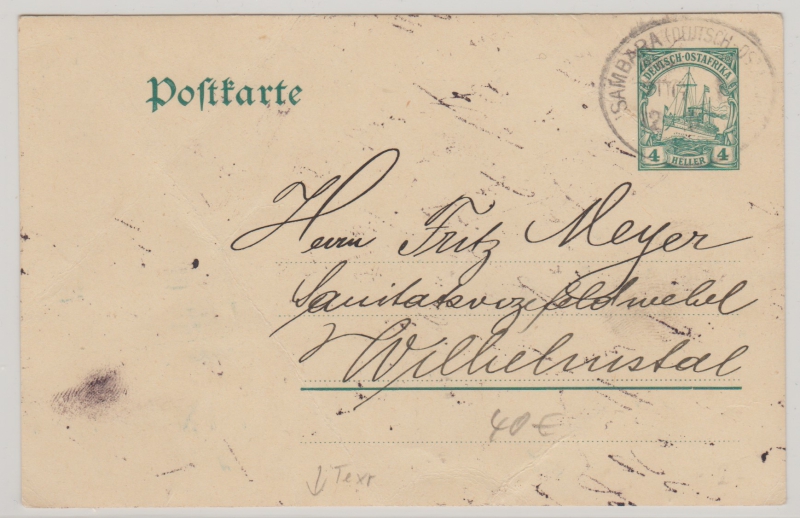 SAMBARA (DEUTSCH-OS
DEUTSCH-OSTAFRIKA
Postkarte
4 HELLER 4
Herrn Fritz Meyer
Sanitätsvizefeldwebel
Wilhelmstal
40 €
↓ Text